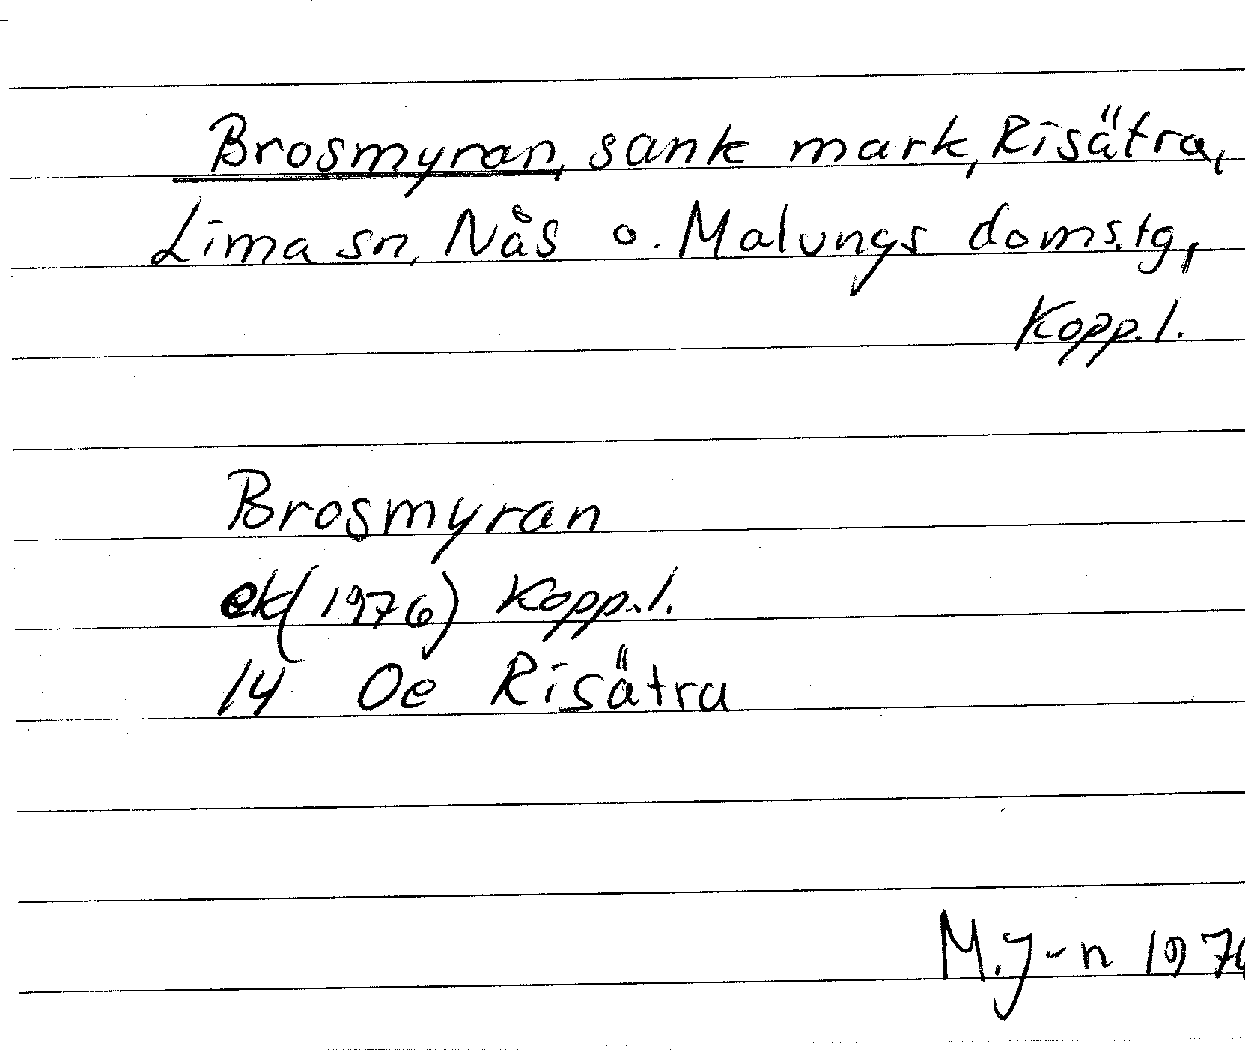 Brosmyran, sank mark, Risätra,
Lima sn, Nås o. Malungs doms.tg,
Kopp.l.
Brosmyran
ek(1976) Kopp.l.
14 Oe Risätra
M.J-n